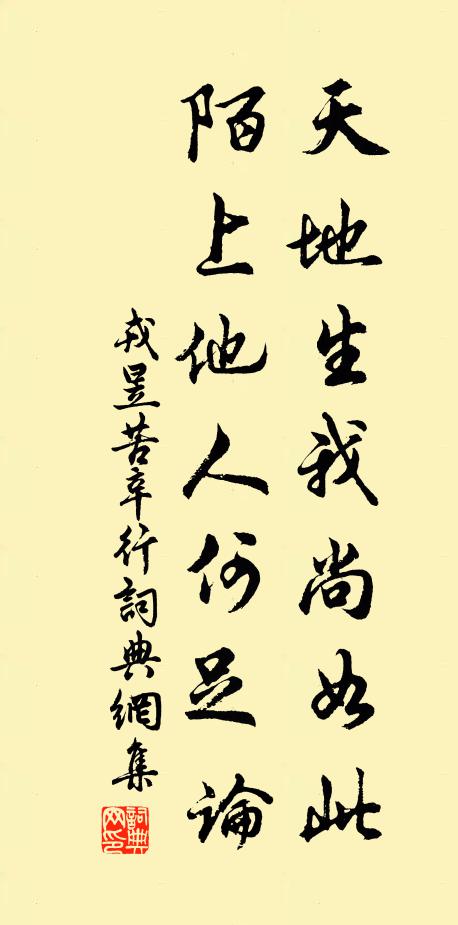 天地生我尚如此
陌上他人何足論
戎昱苦辛行詞典網集
詞典网印